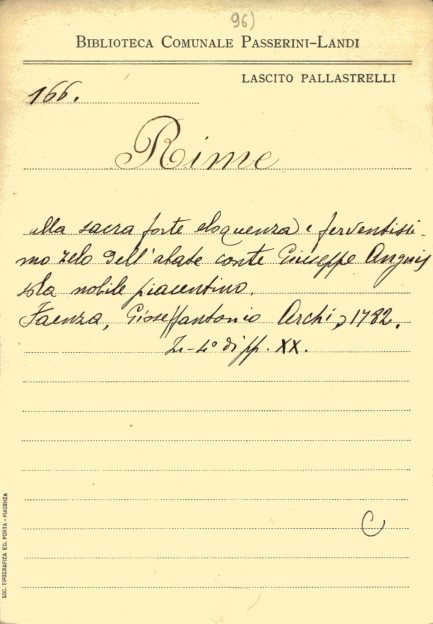 96)
BIBLIOTECA COMUNALE PASSERINI-LANDI
LASCITO PALLASTRELLI
166.
Rime
alla sacra forte eloquenza e ferventissi-
mo zelo dell'abate conte Giuseppe Anguis
sola nobile piacentino.
Faenza, Gioseffantonio Archi, 1782.
In-4º di pp. XX.
C
SOC. TIPOGRAFICA ED. PORTA - PIACENZA